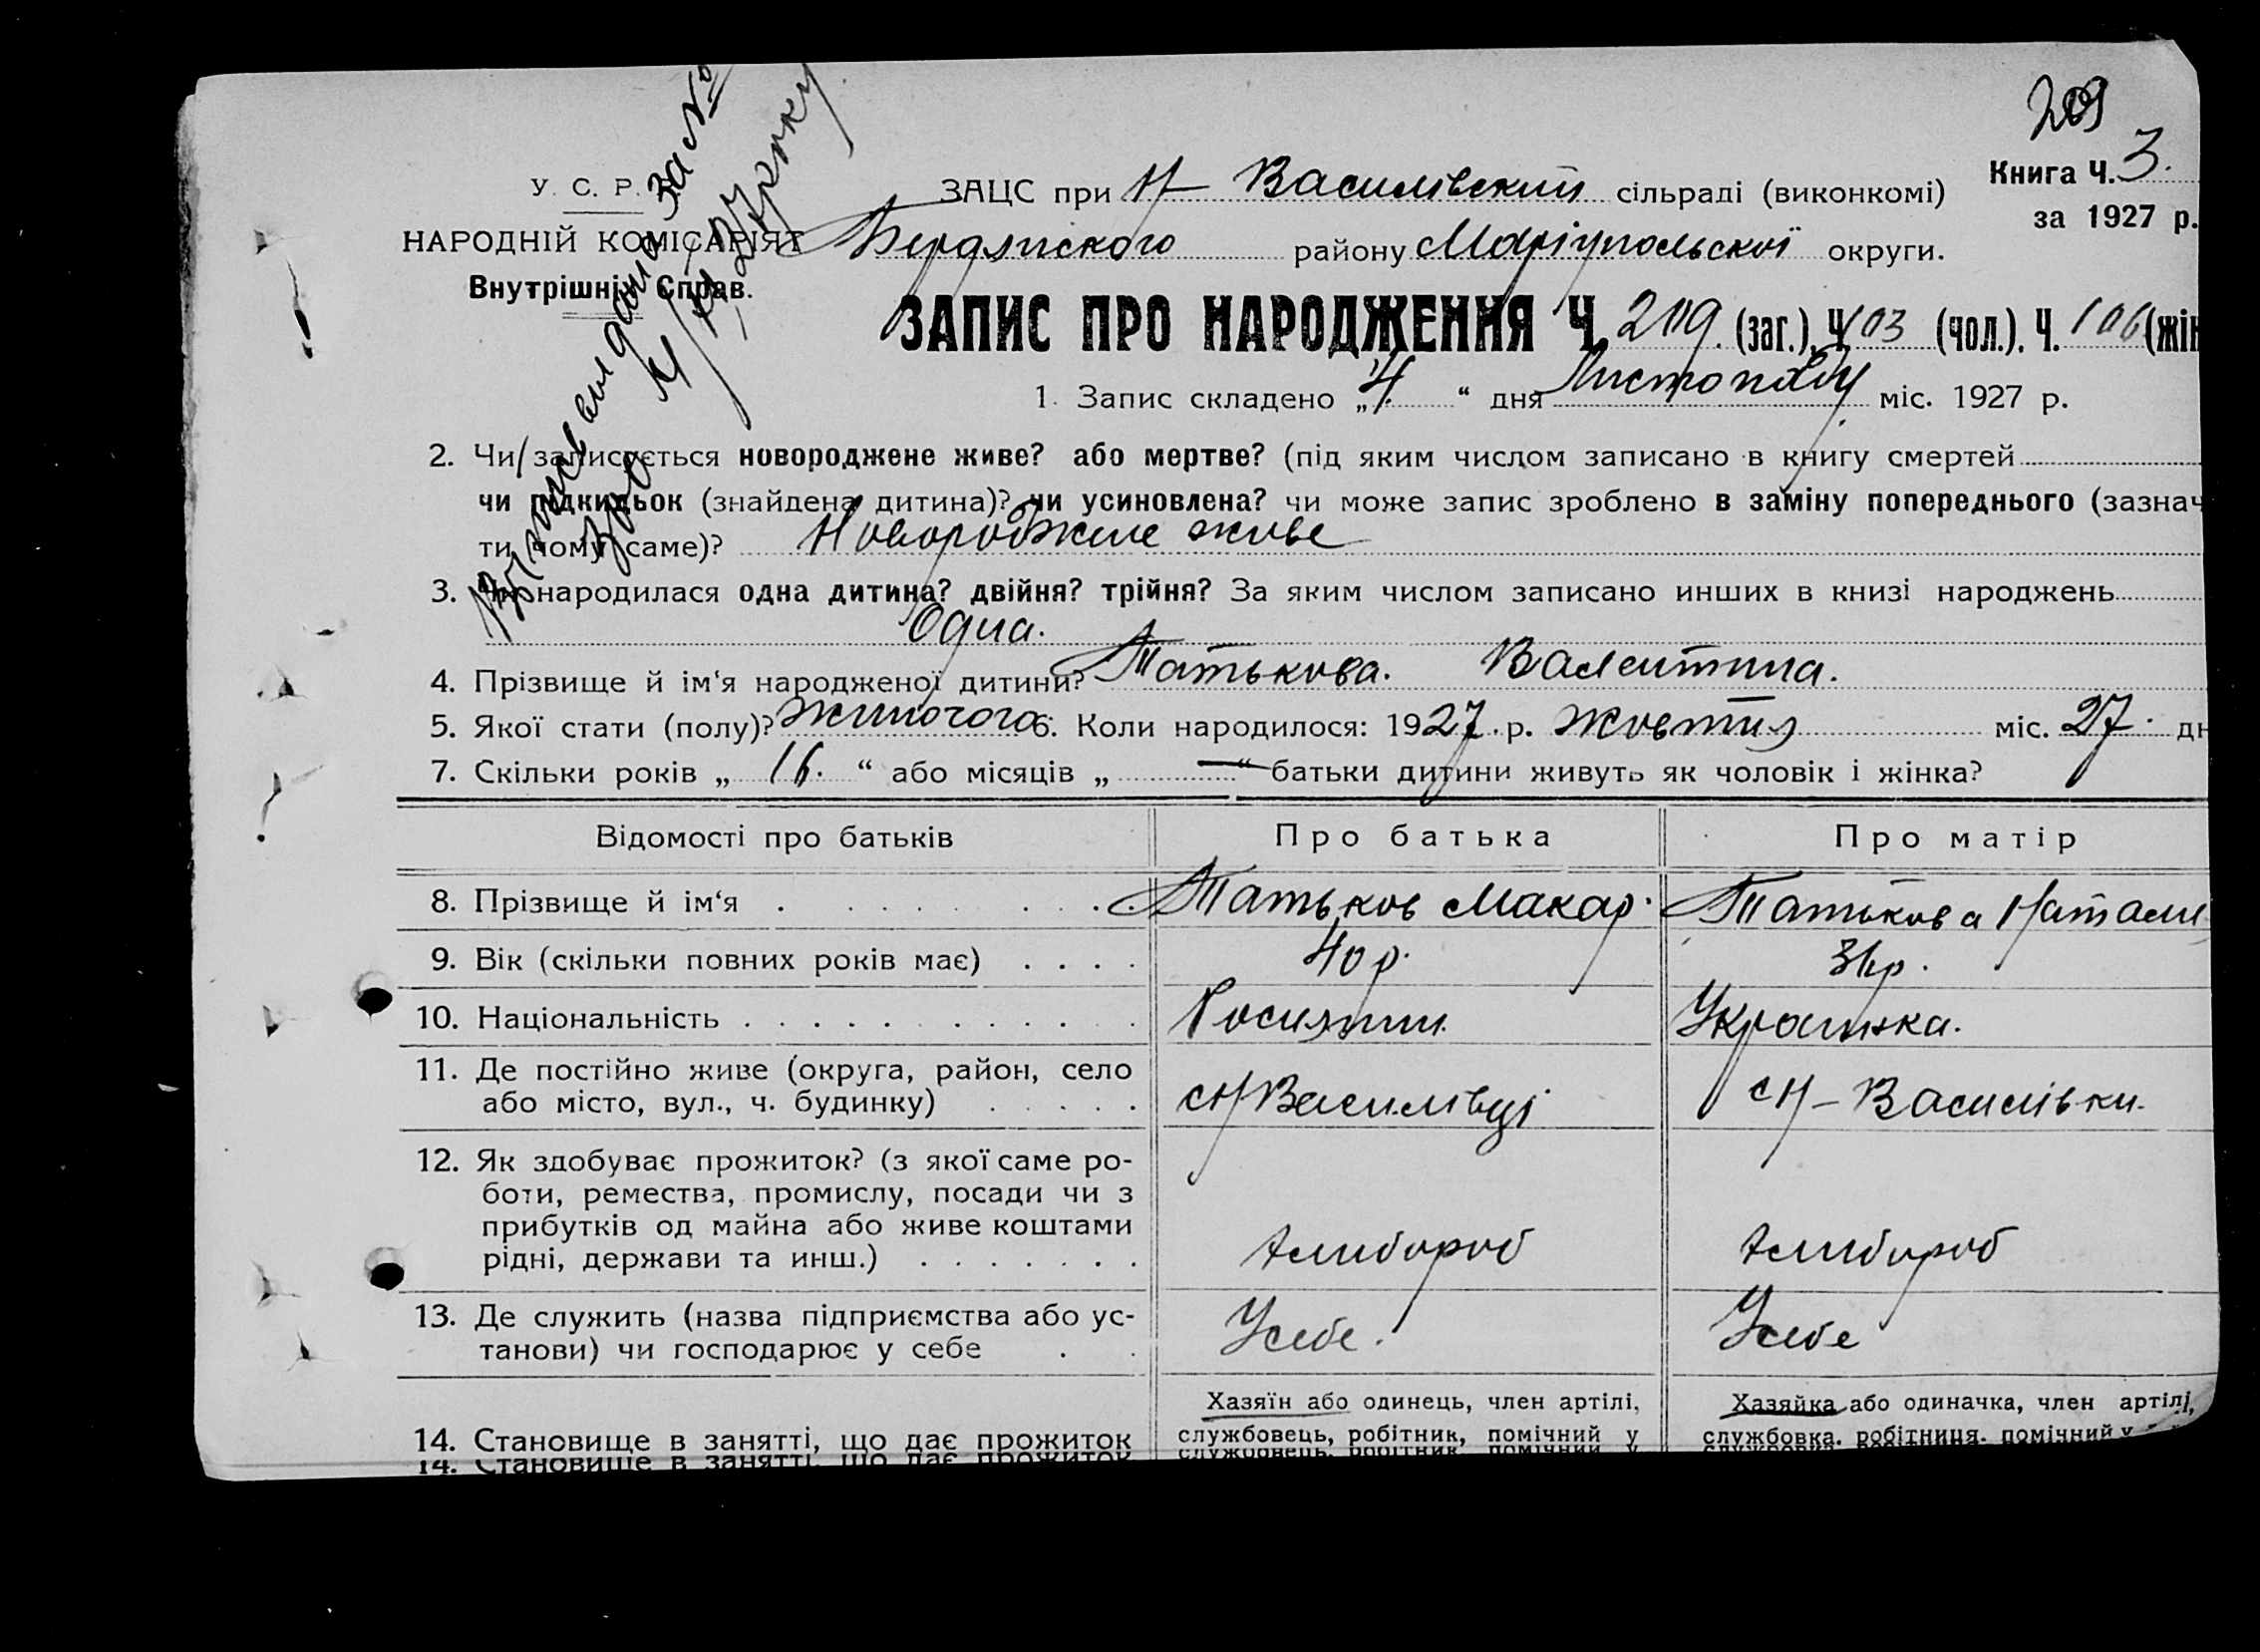 209
У. С. Р. Р.
НАРОДНІЙ КОМІСАРІЯТ
Внутрішніх Справ.
Книга Ч. 3.
за 1927 р.
ЗАЦС при Н-Василівский сільраді (виконкомі)
Бердянского району Маріупольскої округи.
ЗАПИС ПРО НАРОДЖЕННЯ Ч. 209. (заг.). Ч. 103 (чол.). Ч. 106 (жін
1. Запис складено „4.“ дня Листопаду міс. 1927 р.
2. Чи записується новороджене живе? або мертве? (під яким числом записано в книгу смертей
чи підкидьок (знайдена дитина)? чи усиновлена? чи може запис зроблено в заміну попереднього (зазнач
ти чому саме)? Новорожене живе
3. Чи народилася одна дитина? двійня? трійня? За яким числом записано инших в книзі народжень
Одна.
4. Прізвище й ім‘я народженої дитини? Татькова. Валентина.
5. Якої стати (полу)? Жиночого 6. Коли народилося: 1927. р. Жовтня міс. 27. дн
7. Скільки років „16.“ або місяців „—“ батьки дитини живуть як чоловік і жінка?
Відомості про батьків Про батька Про матір
8. Прізвище й ім‘я Татьков Макар. Татькова Наталі
9. Вік (скільки повних років має) 40 р.
10. Національність Росиянин. Українка.
11. Де постійно живе (округа, район, село
або місто, вул., ч. будинку) сН Василівці сН-Василівки.
12. Як здобуває прожиток? (з якої саме ро-
боти, ремества, промислу, посади чи з
прибутків од майна або живе коштами
рідні, держави та инш.) хлибороб хлибороб
13. Де служить (назва підприємства або ус-
танови) чи господарює у себе Усебе. Усебе
Хазяїн або одинець, член артілі, Хазяйка або одиначка, член артілі,
14. Становище в занятті, що дає прожиток службовець, робітник, помічний у службовка, робітниця, помічний у